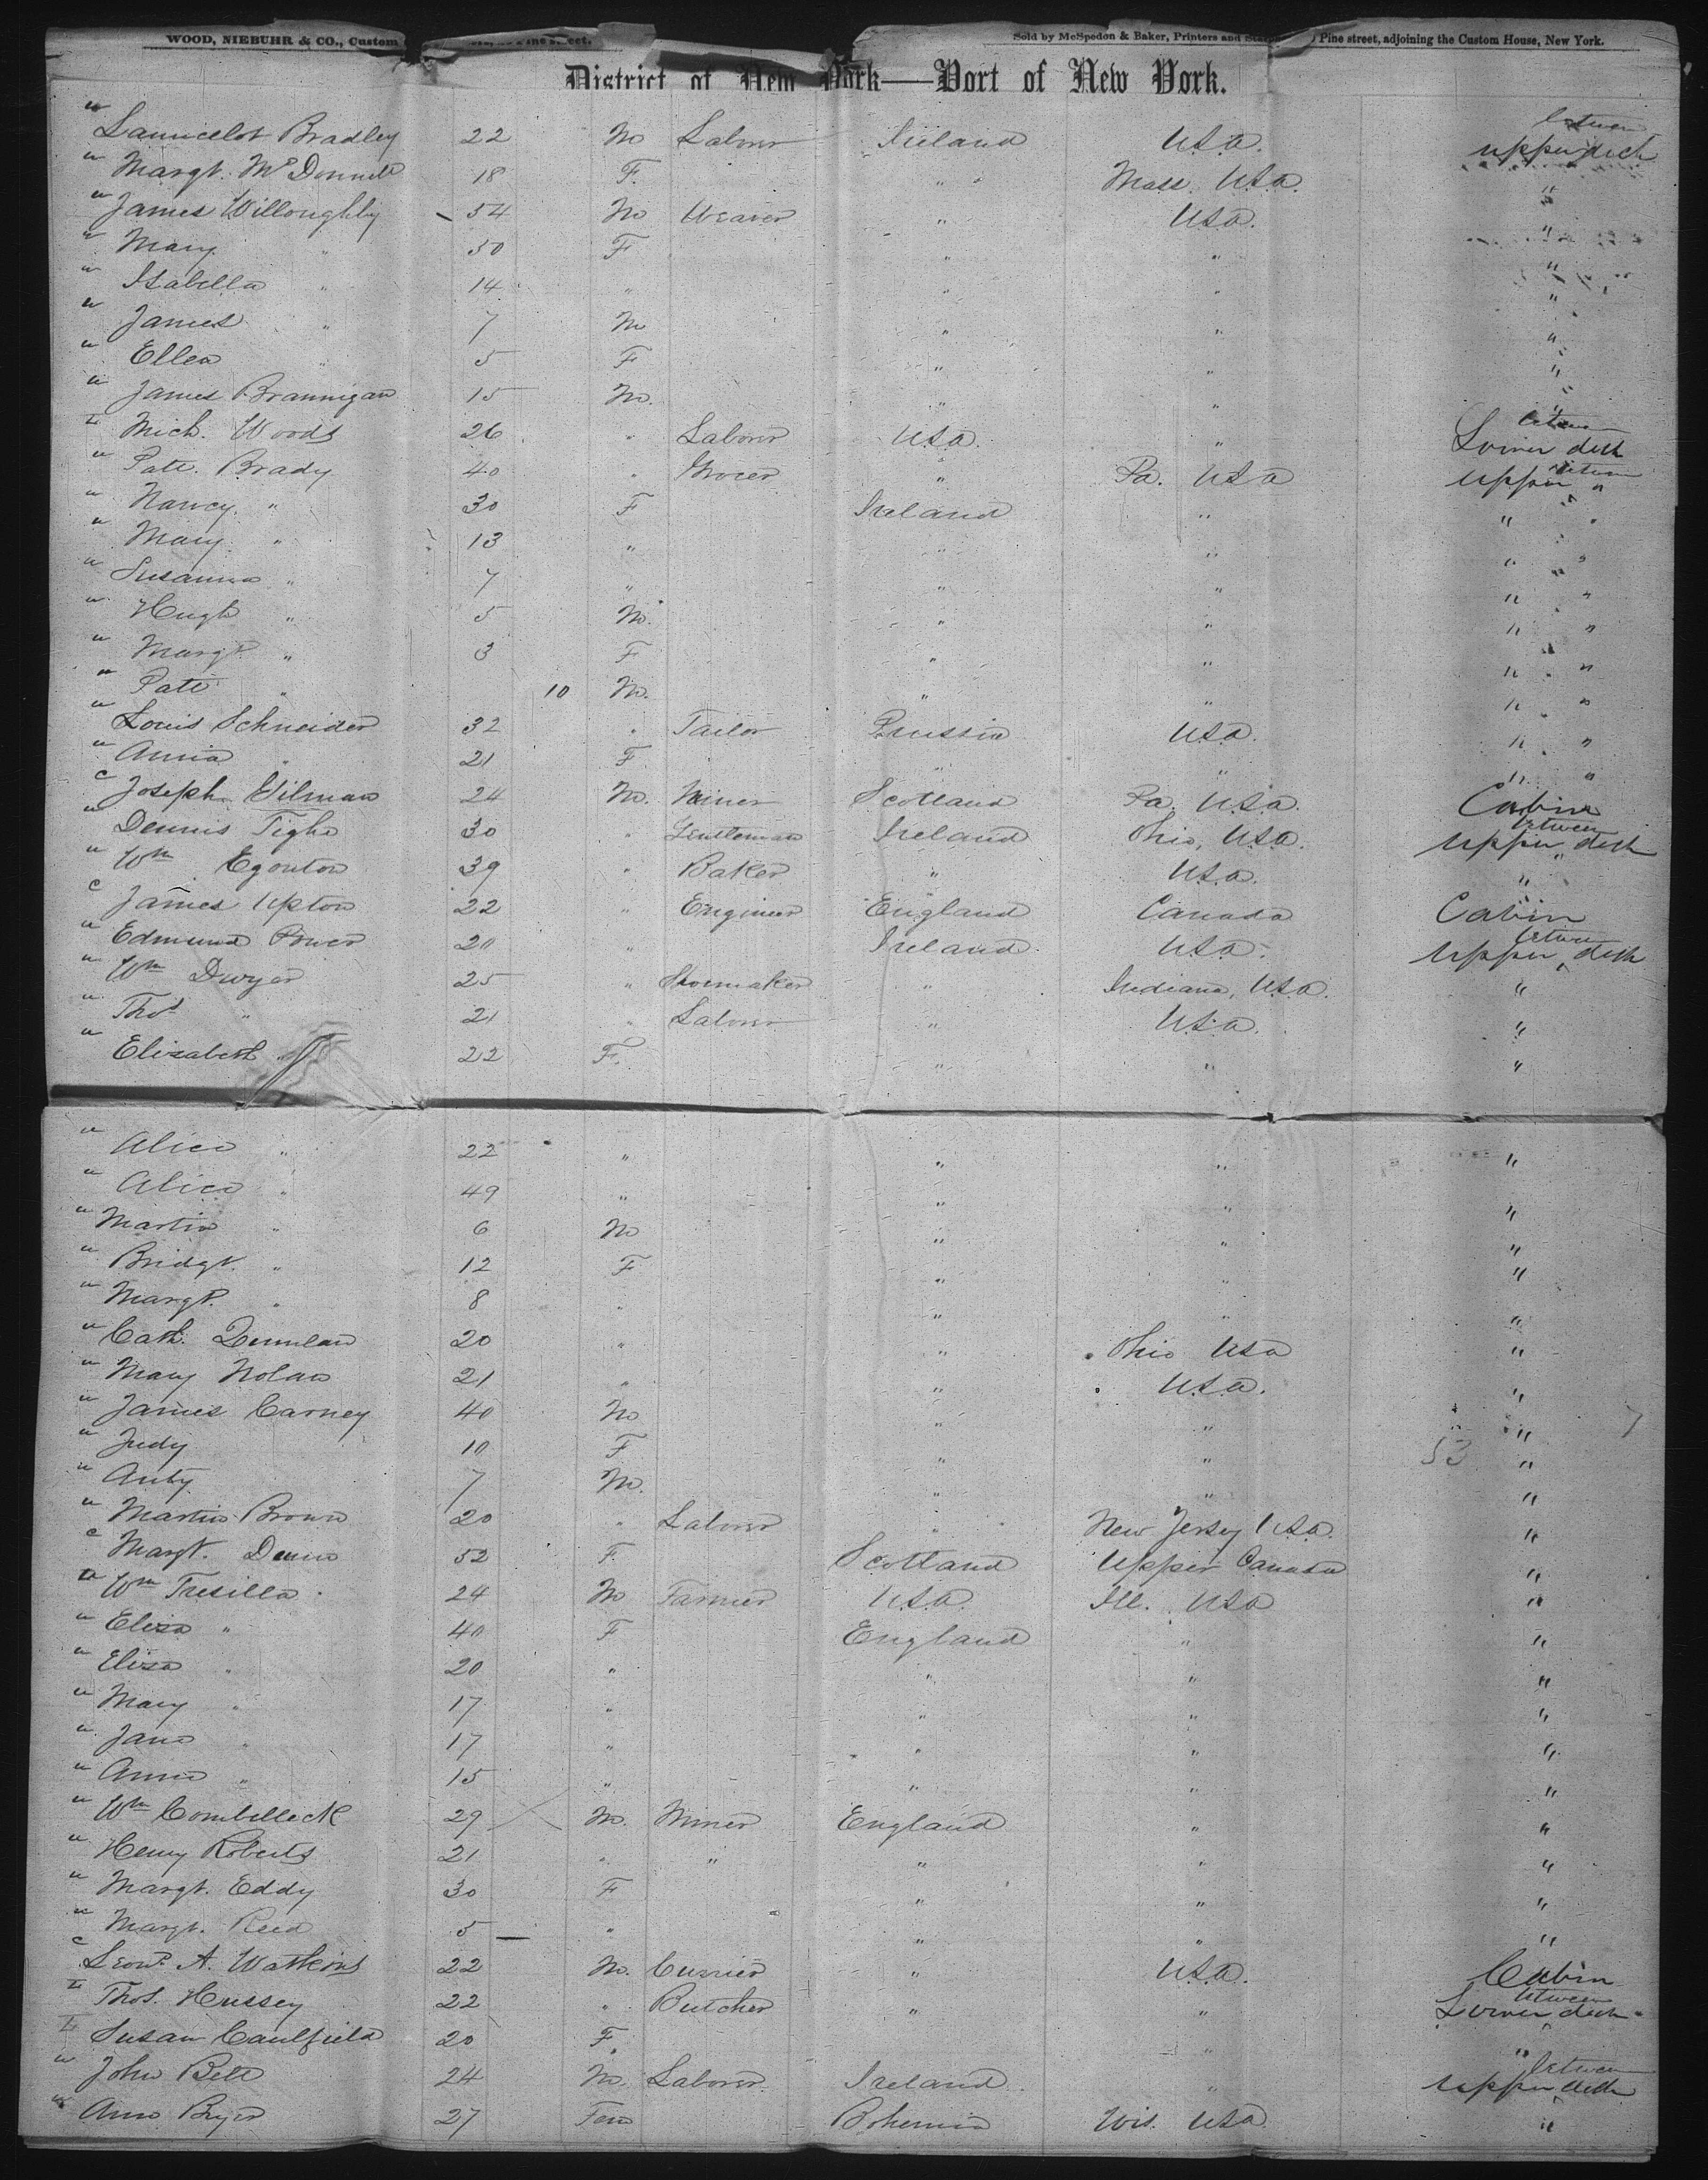 WOOD, NIEBUHR & CO., Custom
Sold by McSpedon & Baker, Printers and Pine street, adjoining the Custom House, New York.
District of New York—Port of New York.
" Launcelot Bradley 22 M Laborer Ireland USA. between upper deck
" Margt. McDonnell 18 F. " Mass. USA. "
" James Willoughby 54 M Weaver " USA. "
" Mary " 50 F " " "
" Isabella " 14 " " " "
" James " 7 M " " "
" Ellen " 5 F " " "
" James Brannigan 15 M. " " "
Mich. Woods 26 " Laborer USA. " Lower between deck
" Patk. Brady 40 " Grocer " Pa. USA upper between "
" Nancy " 30 F Ireland " " "
" Mary " 13 " " " " "
" Susanna " 7 " " " " "
" Hugh " 5 M. " " " "
" Margt. " 3 F " " " "
" Patk " 10 M. " " " "
" Louis Schneider 32 " Tailor Prussia USA. " "
" Annia " 21 F " " " "
c Joseph Gilman 24 M. Miner Scotland Pa. USA. Cabin
" Dennis Tighe 30 " Gentleman Ireland Ohio, USA. upper between deck
" Wm Egonton 39 " Baker " USA. "
c James Upton 22 " Engineer England Canada Cabin
" Edmund Power 20 " Ireland USA. upper between deck
" Wm Dwyer 25 " Shoemaker " Indiana, USA. "
" Thos " 21 " Laborer " USA. "
" Elizabeth " 22 F. " " "
" Alice " 22 " " " "
" Alice " 49 " " " "
" Martin " 6 M " " "
" Bridgt. " 12 F " " "
" Margt. " 8 " " " "
" Cath. Quinlan 20 " " Ohio USA "
" Mary Nolan 21 " " USA. "
" James Carney 40 M " " "
" Judy 10 F " " 53 "
" Anty 7 M. " " "
" Martin Brown 20 " Laborer " New Jersey USA. "
c Margt. Dunn 52 F. Scotland Upper Canada "
Wm Tresilla 24 M Farmer USA. Ill. USA "
" Eliza " 40 F England " "
" Eliza " 20 " " " "
" Mary " 17 " " " "
" Jane " 17 " " " "
" Anne " 15 " " " "
" Wm Combelleck 29 M. Miner England " "
" Henry Roberts 21 " " " " "
" Margt. Eddy 30 F " " "
" Margt. Reed 5 " " " "
c Leond. A. Watkins 22 M. Currier " USA. Cabin
Thos. Hussey 22 " Butcher " " Lower between deck
Susan Caulfield 20 F. " "
" John Bell 24 M. Laborer Ireland " upper between deck
" Ann 27 Fem Bohemia Wis. USA "